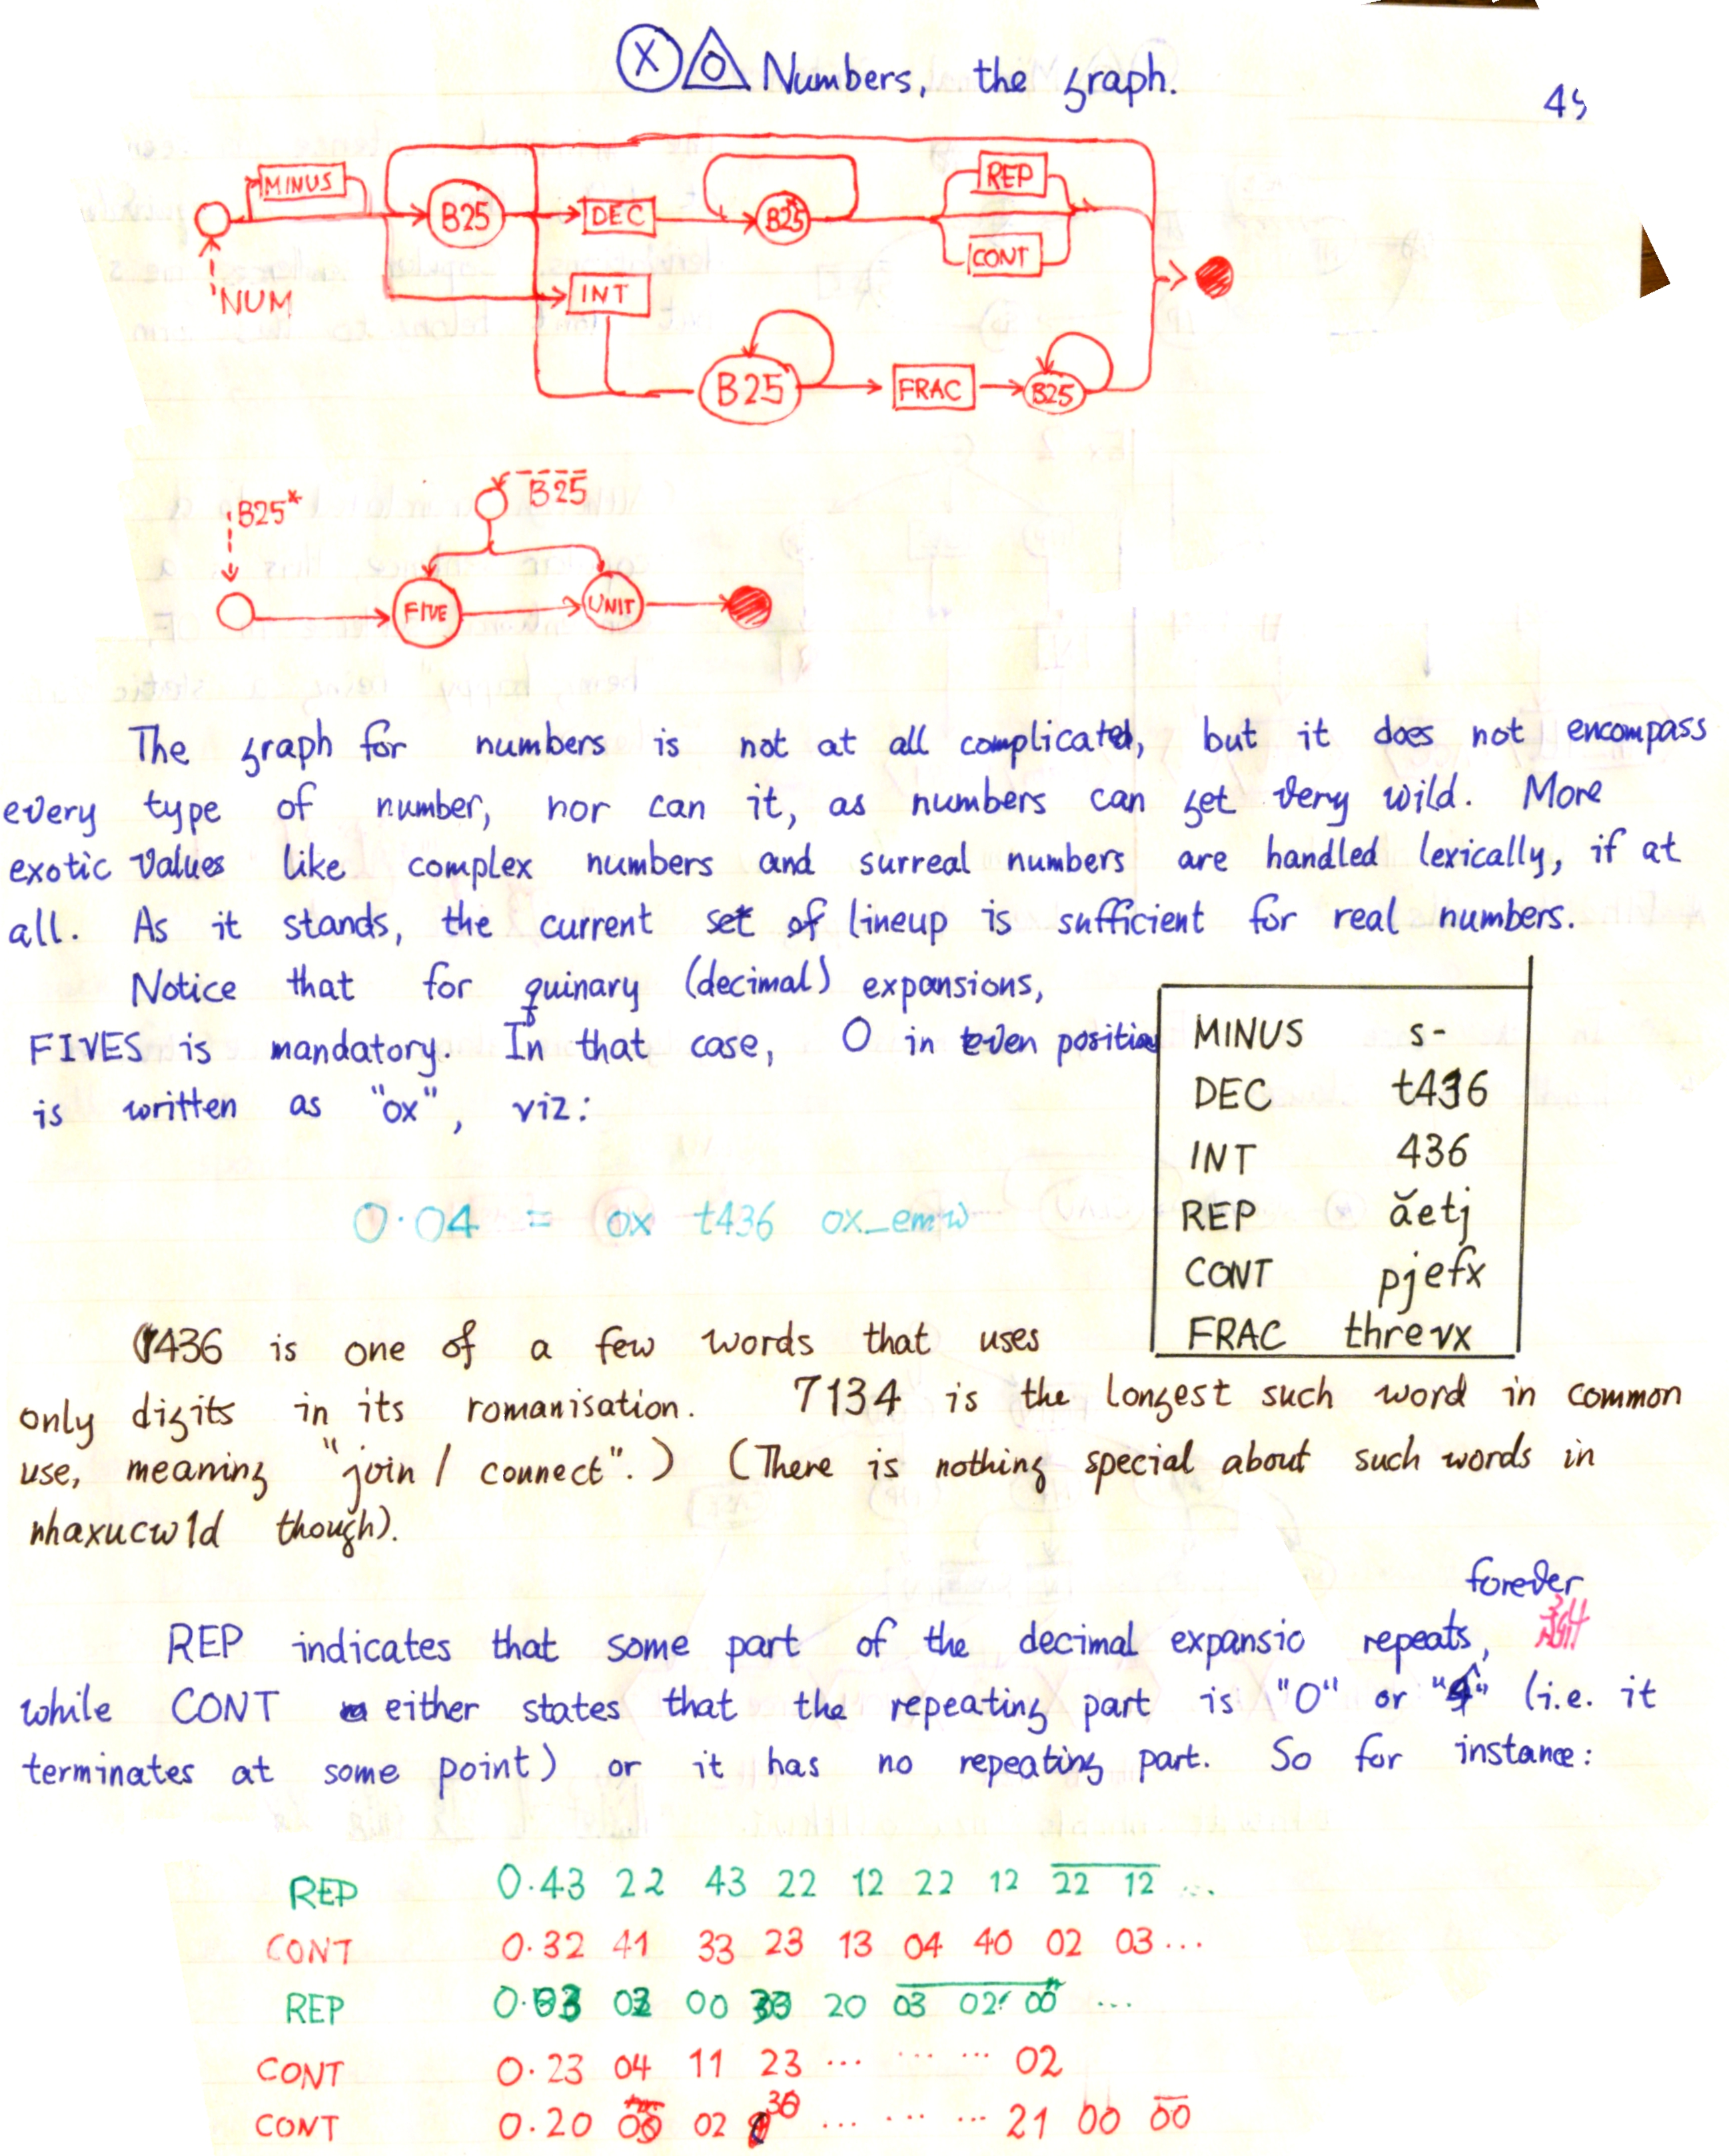 X O Numbers, the graph.
45
MINUS
REP
B25 DEC B25* CONT
'NUM INT
B25 FRAC B25
B25
B25*
FIVE UNIT
The graph for numbers is not at all complicated, but it does not encompass
every type of number, nor can it, as numbers can get very wild. More
exotic values like complex numbers and surreal numbers are handled lexically, if at
all. As it stands, the current set of lineup is sufficient for real numbers.
Notice that for quinary (decimal) expansions,
FIVES is mandatory. In that case, 0 in even position
is written as "ox", viz:
0.04 = ox t436 ox_emw
MINUS s-
DEC t436
INT 436
REP ăetj
CONT pjefx
FRAC threvx
(436 is one of a few words that uses
only digits in its romanisation. 7134 is the longest such word in common
use, meaning "join / connect".) (There is nothing special about such words in
nhaxucw1d though).
forever
REP indicates that some part of the decimal expansio repeats,
while CONT either states that the repeating part is "0" or "4" (i.e. it
terminates at some point) or it has no repeating part. So for instance:
REP 0.43 22 43 22 12 22 12 22 12 ...
CONT 0.32 41 33 23 13 04 40 02 03...
REP 0.33 03 00 33 20 03 02 00 ...
CONT 0.23 04 11 23 ... ... ... 02
CONT 0.20 00 02 30 ... ... ... 21 00 00